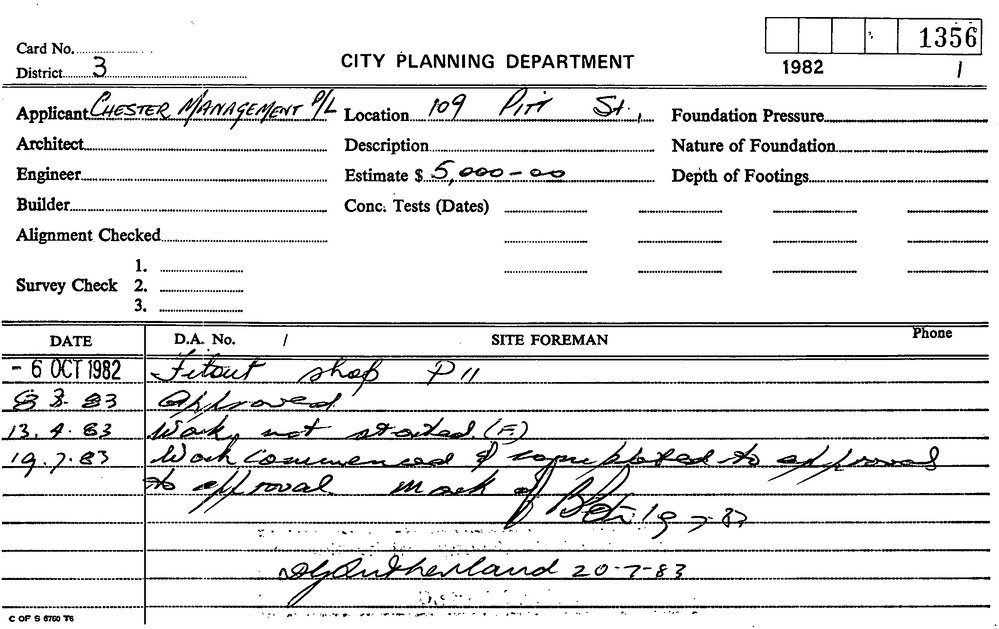 1356
Card No.
District 3
CITY PLANNING DEPARTMENT
1982 /
Applicant CHESTER MANAGEMENT P/L Location 109 Pitt St., Foundation Pressure
Architect Description Nature of Foundation
Engineer Estimate $ 5,000-00 Depth of Footings
Builder Conc. Tests (Dates)
Alignment Checked
1.
Survey Check 2.
3.
DATE D.A. No. / SITE FOREMAN Phone
- 6 OCT 1982 Fitout shop P11
8 3. 83 Approved
13. 4. 83 Work not started. (F.)
19. 7. 83 Work commenced & completed to approval
to approval mark off 19-7-83
Sutherland 20-7-83
C OF S 6760 T6